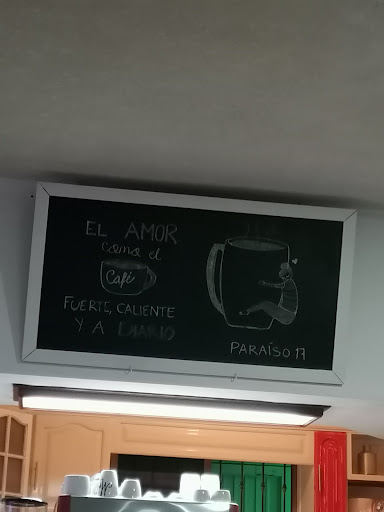 EL AMOR
como el
Café
FUERTE, CALIENTE
Y A DIARIO
PARAÍSO 17